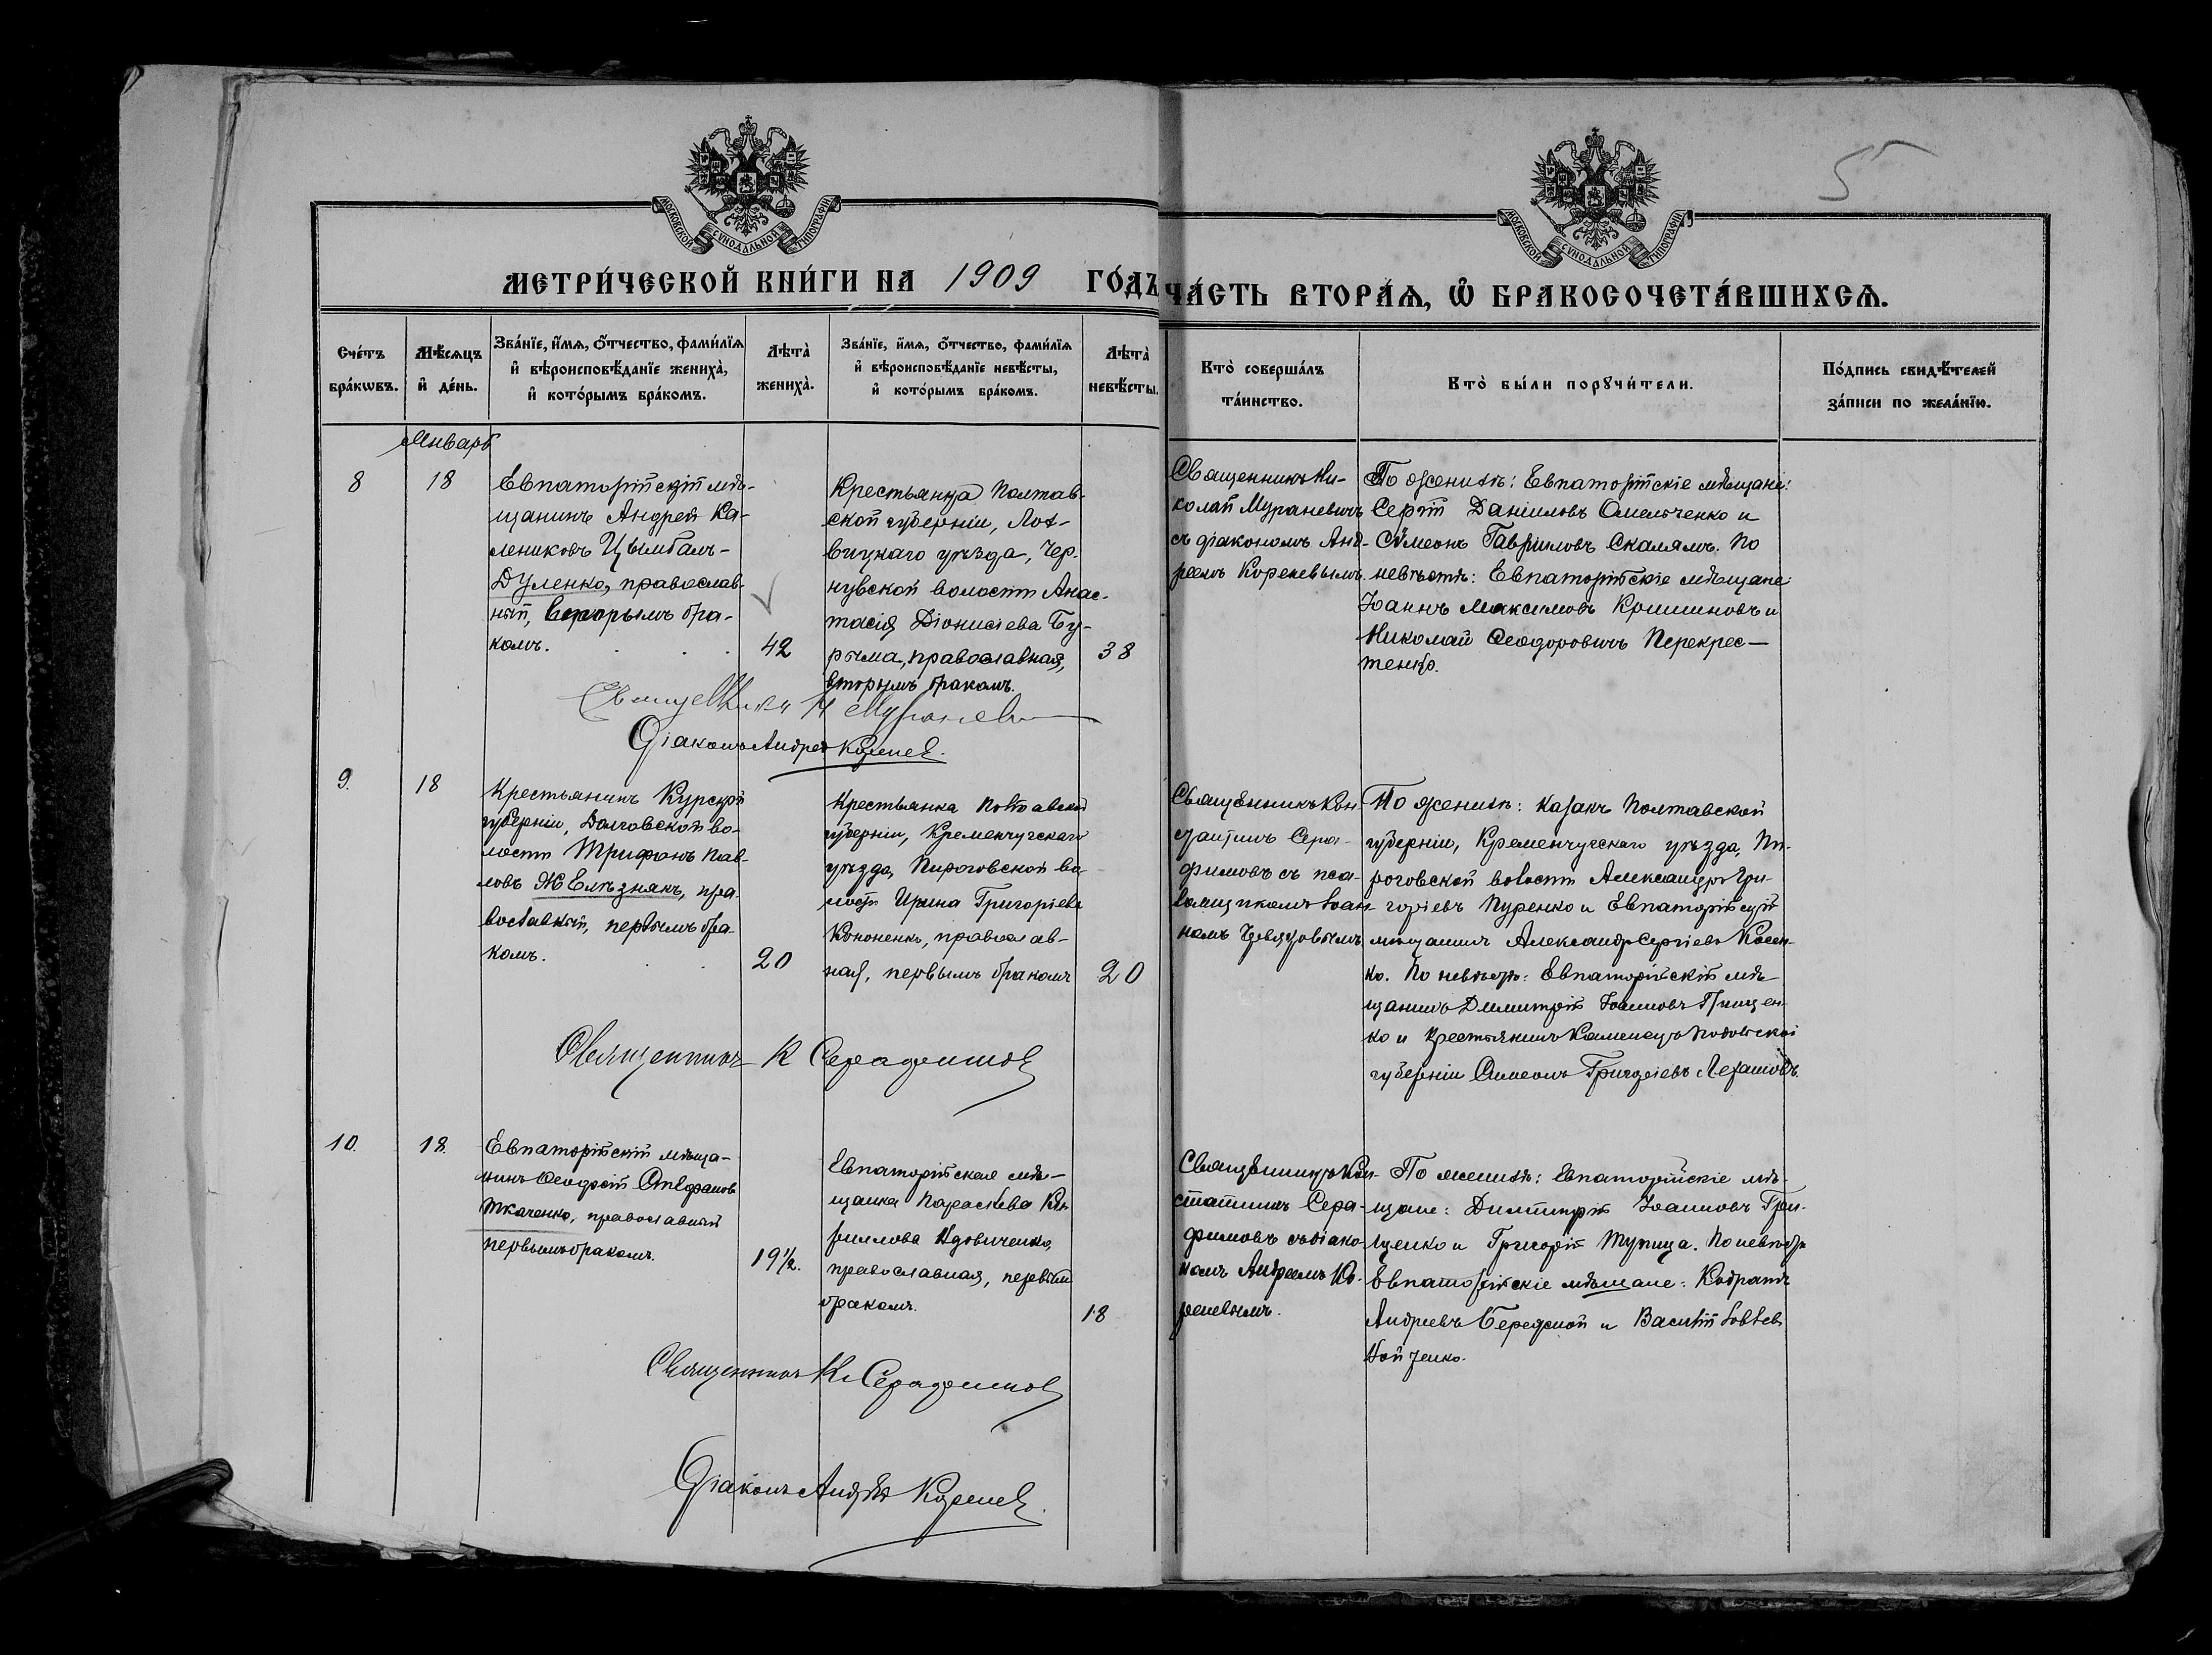 55
МОСКОВСКОЙ СѴНОДАЛЬНОЙ ТИПОГРАФІИ
МОСКОВСКОЙ СѴНОДАЛЬНОЙ ТИПОГРАФІИ
МЕТРИ́ЧЕСКОЙ КНИ́ГИ НА 1909 ГО́ДЪ
ЧА́СТЬ ВТОРА́Ѧ, Ѽ БРАКОСОЧЕТА́ВШИХСѦ.
Сче́тъ
бра́кѡвъ.
Мѣ́сѧцъ
и҆ де́нь.
Зва́нїе, и҆́мѧ, ѻ҆́тчество, фами́лїѧ
и҆ вѣроисповѣ́данїе жениха̀,
и҆ кото́рымъ бра́комъ.
Лѣта̀
жениха̀.
Зва́нїе, и҆́мѧ, ѻ҆́тчество, фами́лїѧ
и҆ вѣроисповѣ́данїе невѣ́сты,
и҆ кото́рымъ бра́комъ.
Лѣта̀
невѣ́сты.
Кто̀ соверша́лъ
та́инство.
Кто̀ бы́ли порꙋчи́тели.
По́дпись свидѣ́телей
за́писи по жела́нїю.
Январь
8
18
Евпаторійскій мѣ-
щанинъ Андрей Ка-
лениковъ Цымбалъ-
Дуленко, православ-
ный, вторымъ бра-
комъ.
42
Крестьянка Полтав-
ской губерніи, Лох-
вицкаго уѣзда, Чер-
нувской волости Анас-
тасія Діонисіева Бу-
рыма, православная,
вторымъ бракомъ.
38
Священникъ Ни-
колай Мураневичъ
съ діакономъ Анд-
реемъ Кореневымъ.
По женихѣ: Евпаторійскіе мѣщане:
Сергій Даніиловъ Омельченко и
Сѵмеонъ Гавриловъ Скалямъ. По
невѣстѣ: Евпаторійскіе мѣщане
Іоаннъ Максимовъ Кришиновъ и
Николай Ѳеодоровичъ Перекрес-
тенко.
Священникъ Н Мураневи
Діаконъ Андрей Коренев.
9.
18
Крестьянинъ Курской
губерніи, Долговской во-
лости Трифонъ Пав-
ловъ Желѣзнякъ, пра-
вославный, первымъ бра-
комъ.
20
Крестьянка Полтавской
губерніи, Кременчугскаго
уѣзда, Пироговской во-
лости Ирина Григоріева
Кононенко, православ-
ная, первымъ бракомъ
20
Священникъ Кон-
стантинъ Сера-
фимовъ съ пса-
ломщикомъ Іоан-
номъ
По женихѣ: казакъ Полтавской
губерніи, Кременчугскаго уѣзда, Пи-
роговской волости Александръ Гри-
горіевъ Пуренко и Евпаторійскій
мѣщанинъ Александръ Сергіевъ Косен-
ко. По невѣстѣ: Евпаторійскій мѣ-
щанинъ Димитрій Іоанновъ Грищен-
ко и крестьянинъ Каменецъ Подольской
губерніи Симеонъ Григоріевъ
Священникъ К Серафимов
10.
18.
Евпаторійскій мѣща-
нинъ Ѳеодосій Стефановъ
Ткаченко, православный
первымъ бракомъ.
19 1/2.
Евпаторійская мѣ-
щанка Параскева Ки-
риллова Удовиченко,
православная, первымъ
бракомъ.
18
Священникъ Кон-
стантинъ Сера-
фимовъ съ діако-
номъ Андреемъ Ко-
реневымъ.
По женихѣ: Евпаторійскіе мѣ-
щане: Димитрій Іоанновъ Гри-
щенко и Григорій Турица. По невѣстѣ
Евпаторійскіе мѣщане: Кодратъ
Андреевъ Бережной и Василій Іовлев
Священникъ К. Серафимов
Діаконъ Андрей Коренев.